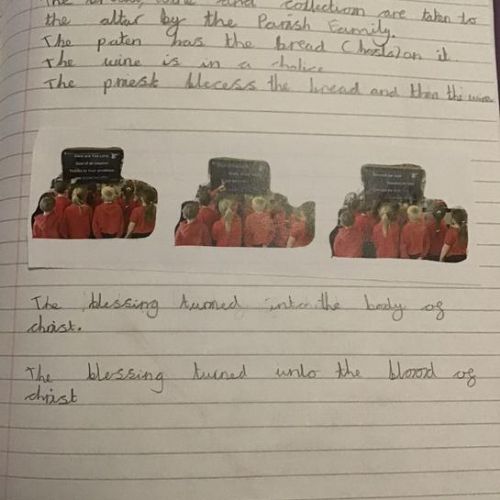 The bread, wine and collection are taken to
the altar by the Parish Family.
The paten has the bread (hosts) on it.
The wine is in a chalice
The priest blecess the bread and then the wine
The blessing turned into the body of
christ.
The blessing turned unto the blood of
christ